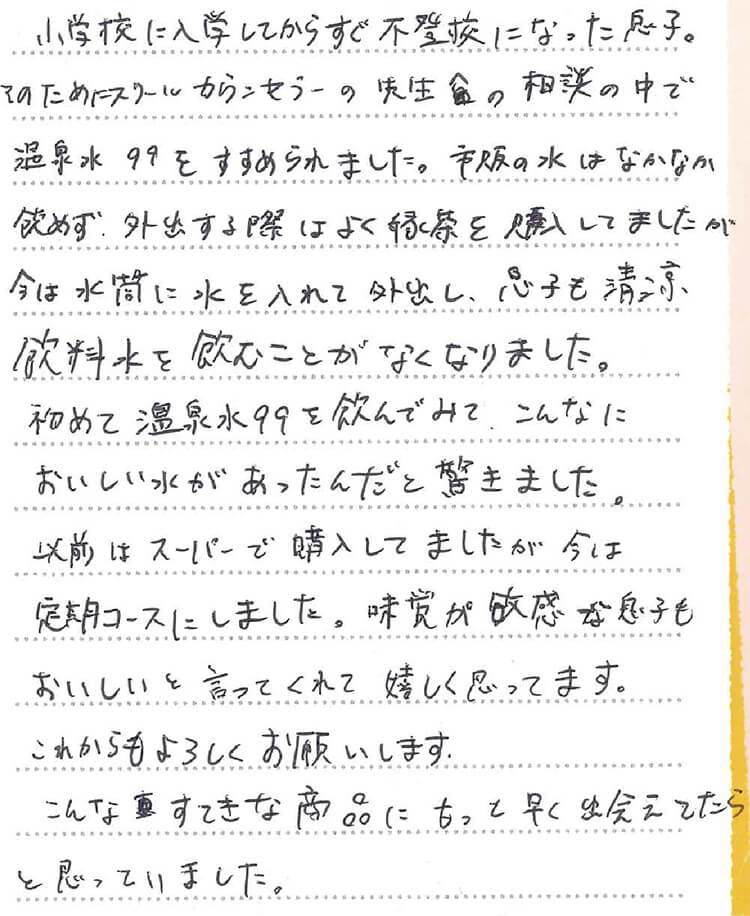 小学校に入学してからすぐ不登校になった息子。
そのためにスクールカウンセラーの先生の相談の中で
温泉水99をすすめられました。市販の水はなかなか
飲めず、外出する際はよく緑茶を購入してましたが
今は水筒に水を入れて外出し、息子も清涼
飲料水を飲むことがなくなりました。
初めて温泉水99を飲んでみて、こんなに
おいしい水があったんだと驚きました。
以前はスーパーで購入してましたが今は
定期コースにしました。味覚が敏感な息子も
おいしいと言ってくれて嬉しく思ってます。
これからもよろしくお願いします。
こんなすてきな商品にもっと早く出会えてたら
と思っていました。